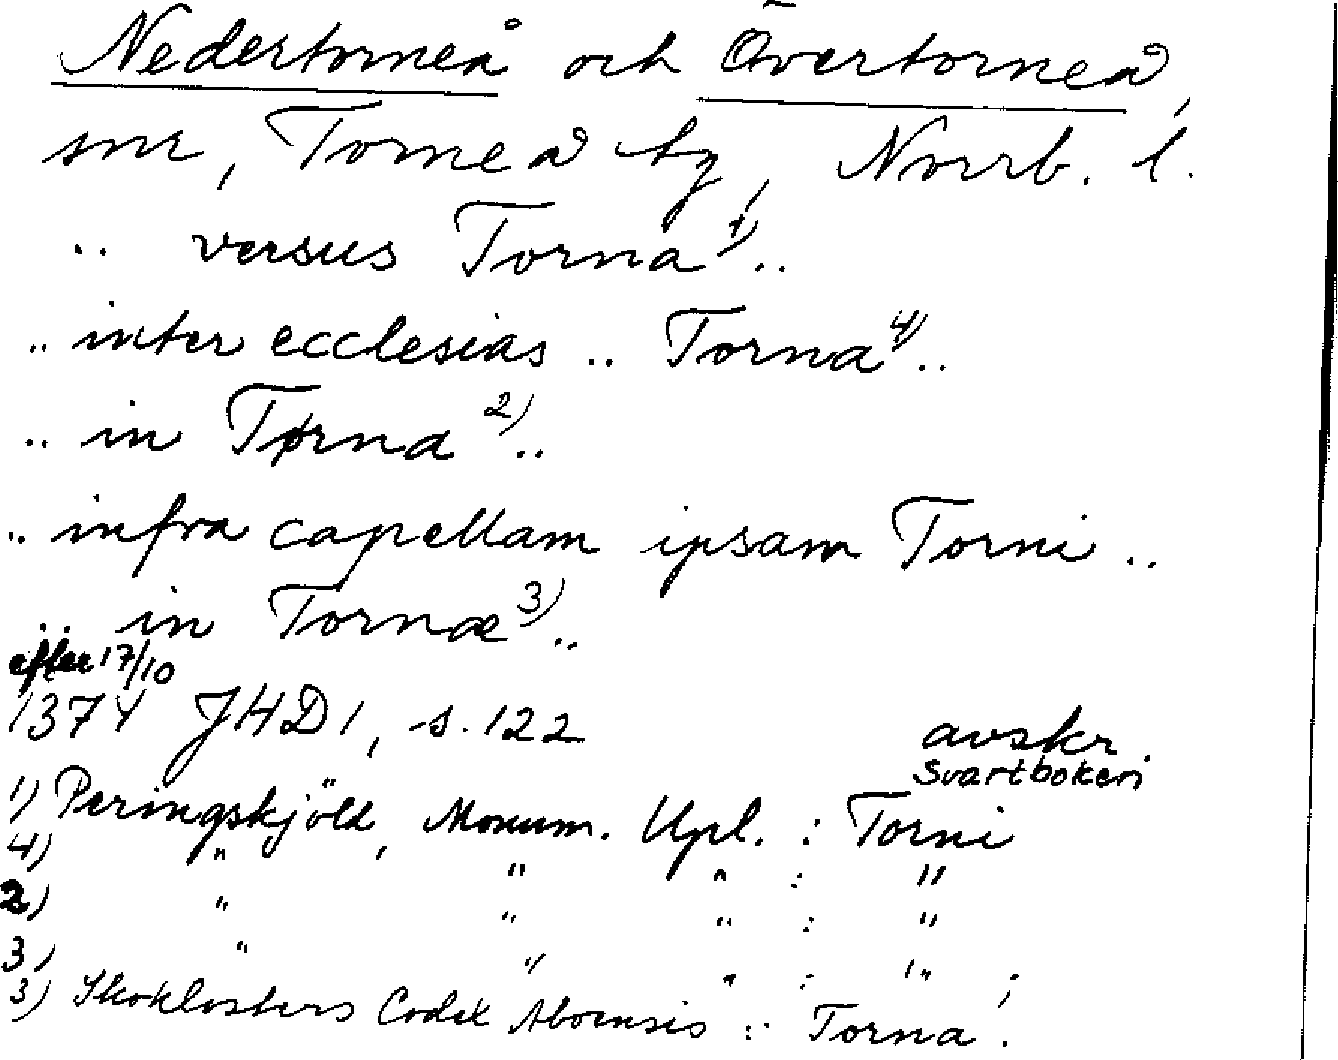 Nedertorneå och Övertorneå,
snr, Torneå by, Norrb. l.
.. versus Torna 1) ..
.. inter ecclesias .. Torna 4) ..
.. in Tørna 2) ..
.. infra capellam ipsam Torni ..
.. in Tornæ 3) ..
efter 17/10
1374 JHD 1, s. 122 avskr.
Svartboken
1) Peringskjöld, Monum. Upl. : Torni
4) " , " " : "
2) " " " : "
3) " " " : " ;
3) Skoklosters Codex Aboensis : Torna.